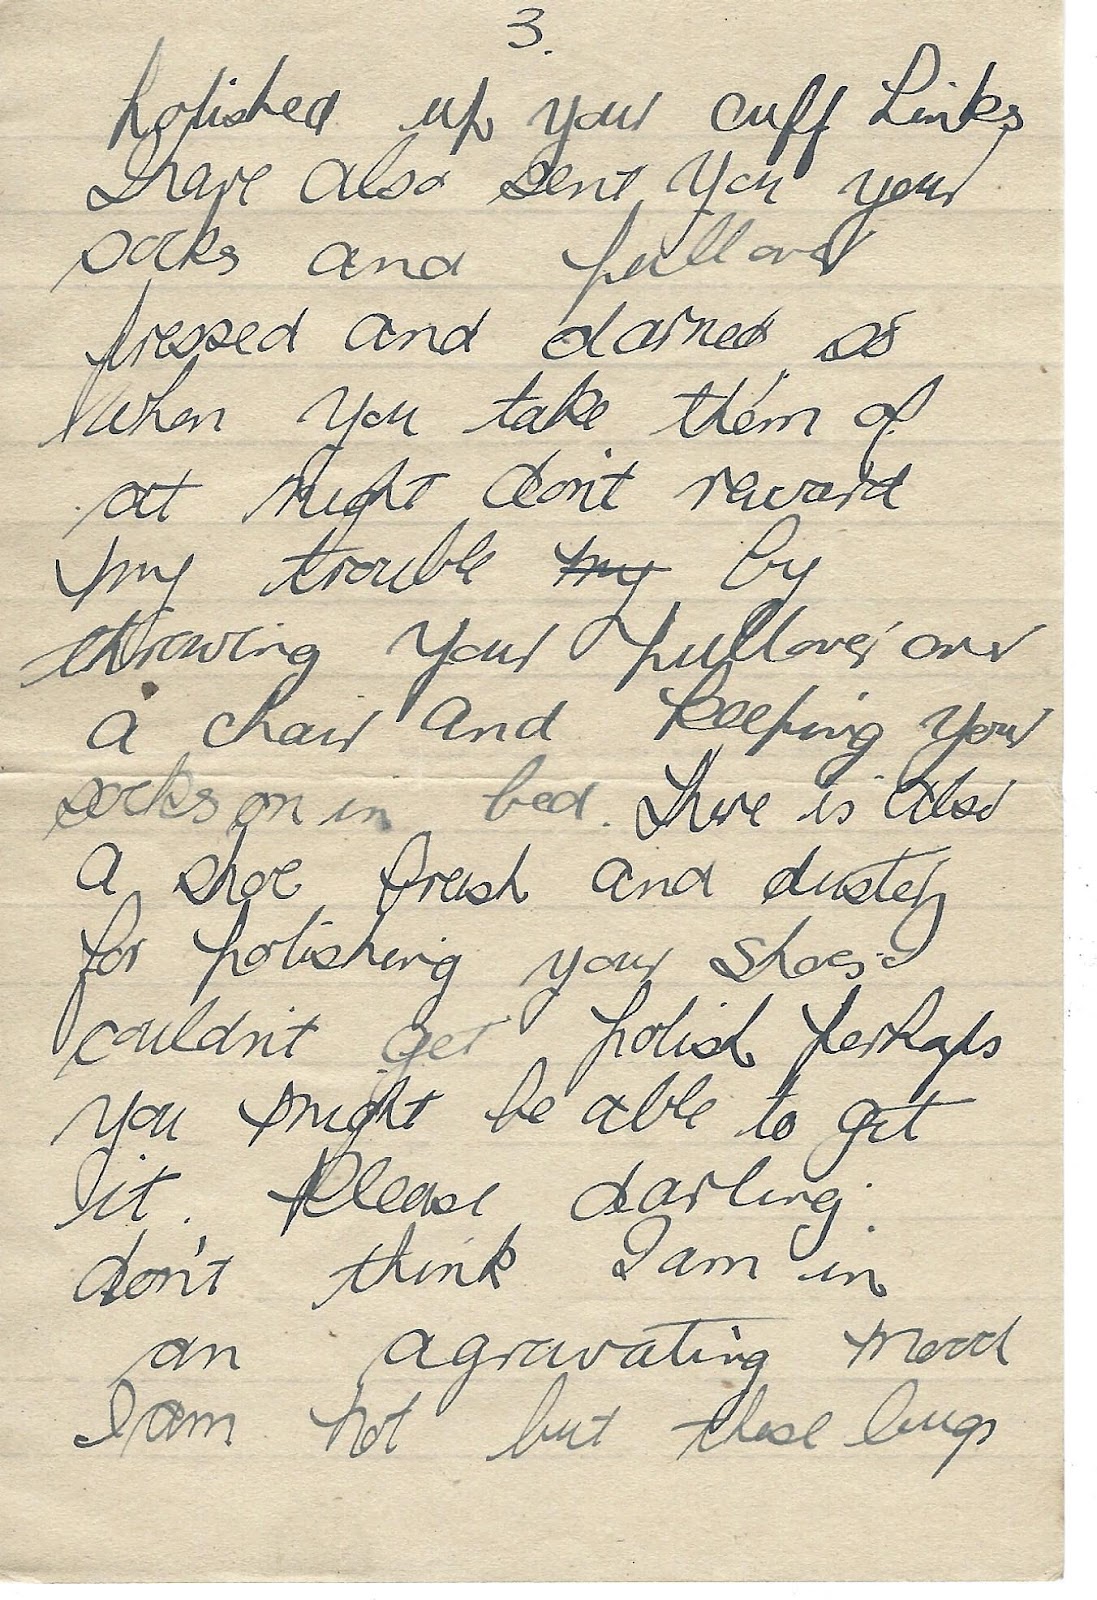 3.
polished up your cuff Links
I have also sent you your
socks and pullover
pressed and darned so
when you take them of
at night don't reward
my trouble my by
throwing your pullover over
a chair and keeping your
socks on in bed. There is also
a shoe brush and duster
for polishing your shoes I
couldn't get polish perhaps
you might be able to get
it. Please darling.
don't think I am in
an agravating mood
I am not but these bugs